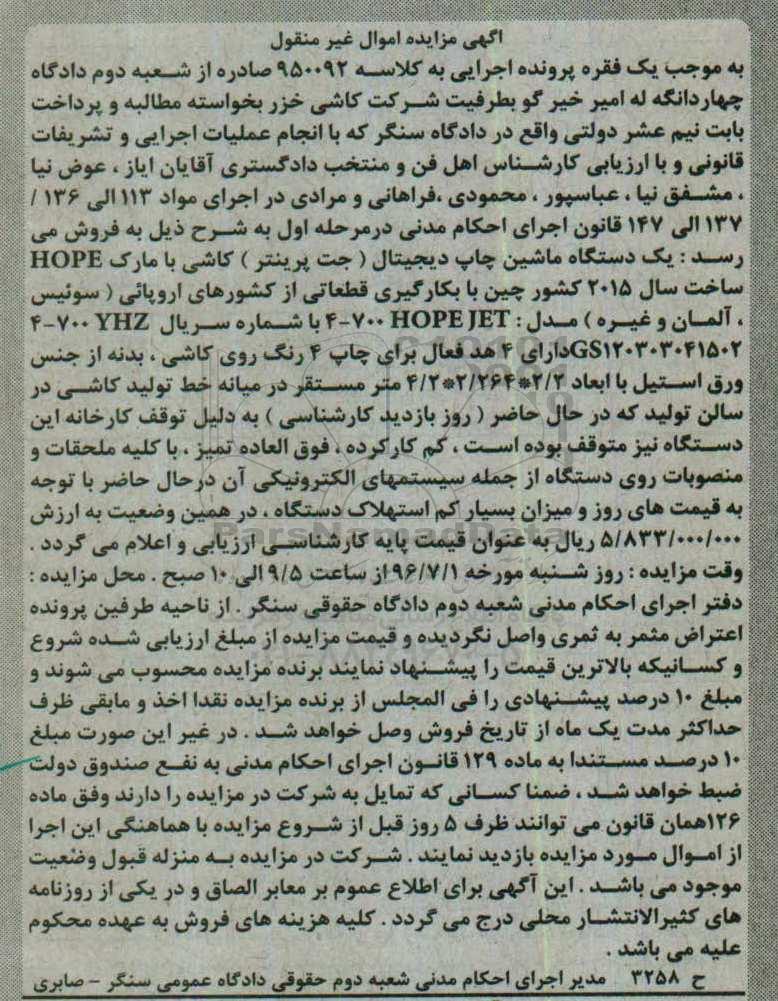 آگهی مزایده اموال غیر منقول
به موجب یک فقره پرونده اجرایی به کلاسه ۹۵۰۰۹۲ صادره از شعبه دوم دادگاه
چهاردانگه له امیر خیر گو بطرفیت شرکت کاشی خزر بخواسته مطالبه و پرداخت
بابت نیم عشر دولتی واقع در دادگاه سنگر که با انجام عملیات اجرایی و تشریفات
قانونی و با ارزیابی کارشناس اهل فن و منتخب دادگستری آقایان ایاز ، عوض نیا
، مشفق نیا ، عباسپور ، محمودی ،فراهانی و مرادی در اجرای مواد ۱۱۳ الی ۱۳۶ /
۱۳۷ الی ۱۴۷ قانون اجرای احکام مدنی درمرحله اول به شرح ذیل به فروش می
رسد : یک دستگاه ماشین چاپ دیجیتال ( جت پرینتر ) کاشی با مارک HOPE
ساخت سال ۲۰۱۵ کشور چین با بکارگیری قطعاتی از کشورهای اروپائی ( سوئیس
، آلمان و غیره ) مدل : HOPE JET ۷۰۰-۴ با شماره سریال YHZ ۷۰۰-۴
GS۱۲۰۳۰۳۰۴۱۵۰۲دارای ۴ هد فعال برای چاپ ۴ رنگ روی کاشی ، بدنه از جنس
ورق استیل با ابعاد ۲/۲*۲/۲۶۴*۴/۲ متر مستقر در میانه خط تولید کاشی در
سالن تولید که در حال حاضر ( روز بازدید کارشناسی ) به دلیل توقف کارخانه این
دستگاه نیز متوقف بوده است ، کم کارکرده ، فوق العاده تمیز ، با کلیه ملحقات و
منصوبات روی دستگاه از جمله سیستمهای الکترونیکی آن درحال حاضر با توجه
به قیمت های روز و میزان بسیار کم استهلاک دستگاه ، در همین وضعیت به ارزش
۵/۸۳۳/۰۰۰/۰۰۰ ریال به عنوان قیمت پایه کارشناسی ارزیابی و اعلام می گردد .
وقت مزایده : روز شنبه مورخه ۹۶/۷/۱ از ساعت ۹/۵ الی ۱۰ صبح . محل مزایده :
دفتر اجرای احکام مدنی شعبه دوم دادگاه حقوقی سنگر . از ناحیه طرفین پرونده
اعتراض مثمر به ثمری واصل نگردیده و قیمت مزایده از مبلغ ارزیابی شده شروع
و کسانیکه بالاترین قیمت را پیشنهاد نمایند برنده مزایده محسوب می شوند و
مبلغ ۱۰ درصد پیشنهادی را فی المجلس از برنده مزایده نقدا اخذ و مابقی ظرف
حداکثر مدت یک ماه از تاریخ فروش وصل خواهد شد . در غیر این صورت مبلغ
۱۰ درصد مستندا به ماده ۱۲۹ قانون اجرای احکام مدنی به نفع صندوق دولت
ضبط خواهد شد ، ضمنا کسانی که تمایل به شرکت در مزایده را دارند وفق ماده
۱۲۶همان قانون می توانند ظرف ۵ روز قبل از شروع مزایده با هماهنگی این اجرا
از اموال مورد مزایده بازدید نمایند . شرکت در مزایده به منزله قبول وضعیت
موجود می باشد . این آگهی برای اطلاع عموم بر معابر الصاق و در یکی از روزنامه
های کثیرالانتشار محلی درج می گردد . کلیه هزینه های فروش به عهده محکوم
علیه می باشد .
ح ۳۲۵۸ مدیر اجرای احکام مدنی شعبه دوم حقوقی دادگاه عمومی سنگر - صابری